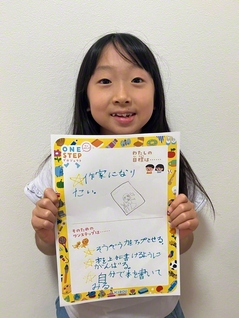 ONE
STEP
わたしの
目標は……
作家になり
たい。
そのための
ワンステップは……
そうぞう力をアップさせる。
本を上手に書けるように
がんばる。
自分で本を書いて
みる。